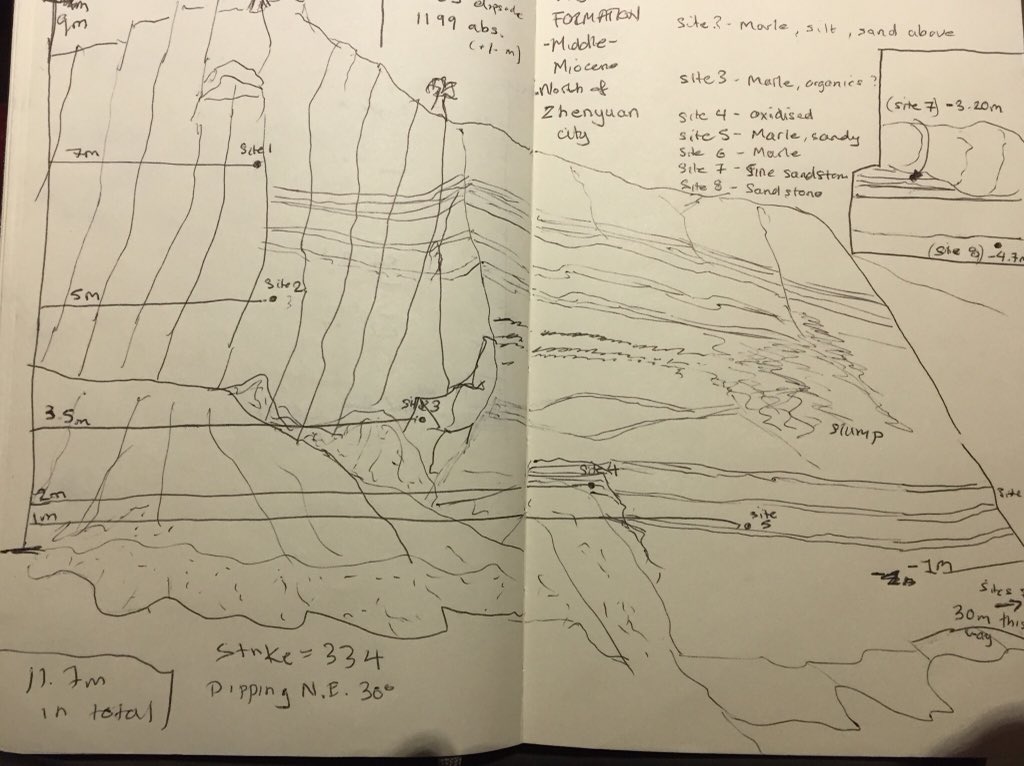 9m
elipsode
1199 abs.
(+/- m)
7m
Site 1
5m
Site 2
3
3.5m
Site 3
2m
1m
11.7m
in total
Strike = 334
Dipping N.E. 30°
FORMATION
-Middle-
Miocene
North of
Zhenyuan
city
Site 2 - Marle, silt, sand above
Site 3 - Marle, organics?
Site 4 - oxidised
Site 5 - Marle, sandy
Site 6 - Marle
Site 7 - fine sandston
Site 8 - Sandstone
(Site 7) -3.20m
(Site 8) -4.7m
slump
Site 4
Site
5
Site
-1m
Sites
30m this
way